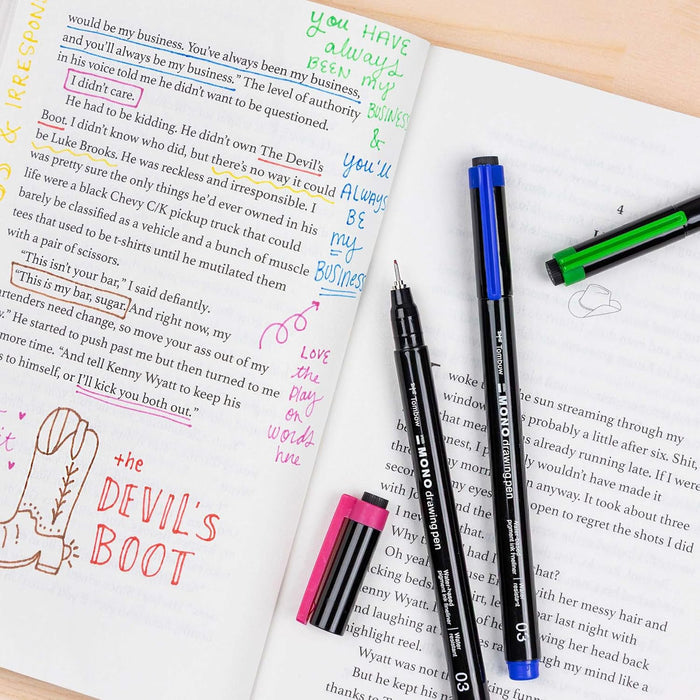 would be my business. You've always been my business,
and you'll always be my business." The level of authority
in his voice told me he didn't want to be questioned.
I didn't care.
He had to be kidding. He didn't own The Devil's
Boot. I didn't know who did, but there's no way it could
be Luke Brooks. He was reckless and irresponsible. I
was pretty sure the only things he'd ever owned in his
life were a black Chevy C/K pickup truck that could
barely be classified as a vehicle and a bunch of muscle
tees that used to be t-shirts until he mutilated them
with a pair of scissors.
"This isn't your bar," I said defiantly.
"This is my bar, sugar. And right now, my
need change, so move your ass out of my
He started to push past me but then turned to me
more time. "And tell Kenny Wyatt to keep his
to himself, or I'll kick you both out."
& IRRESPON
you HAVE
always
BEEN my
BUSINESS
&
you'll
ALWAYS
BE
my
BUSINESS
LOVE
the
play
on
words
here
the
DEVIL'S
BOOT
4
woke
the sun streaming through my
window
was probably a little after six. Shit,
that mea
was already running late. If I were
nest, I
wouldn't have made it
my morn
anyway. It took about three
my eyes
open to regret the shots I did
with Jo
I never
that.
Why
had I
that?
Oh yeah
with her messy hair and
beds.
bar last night with
Wyatt. I
her head back
and laughing at
my mind like a
highlight reel.
Wyatt was not th
But he kept his na
thanks to T
Tombow
MONO drawing pen
Water-based
pigment ink fineliner
Water
resistant
03
Tombow
MONO drawing pen
Water-based
pigment ink fineliner
Water
resistant
03